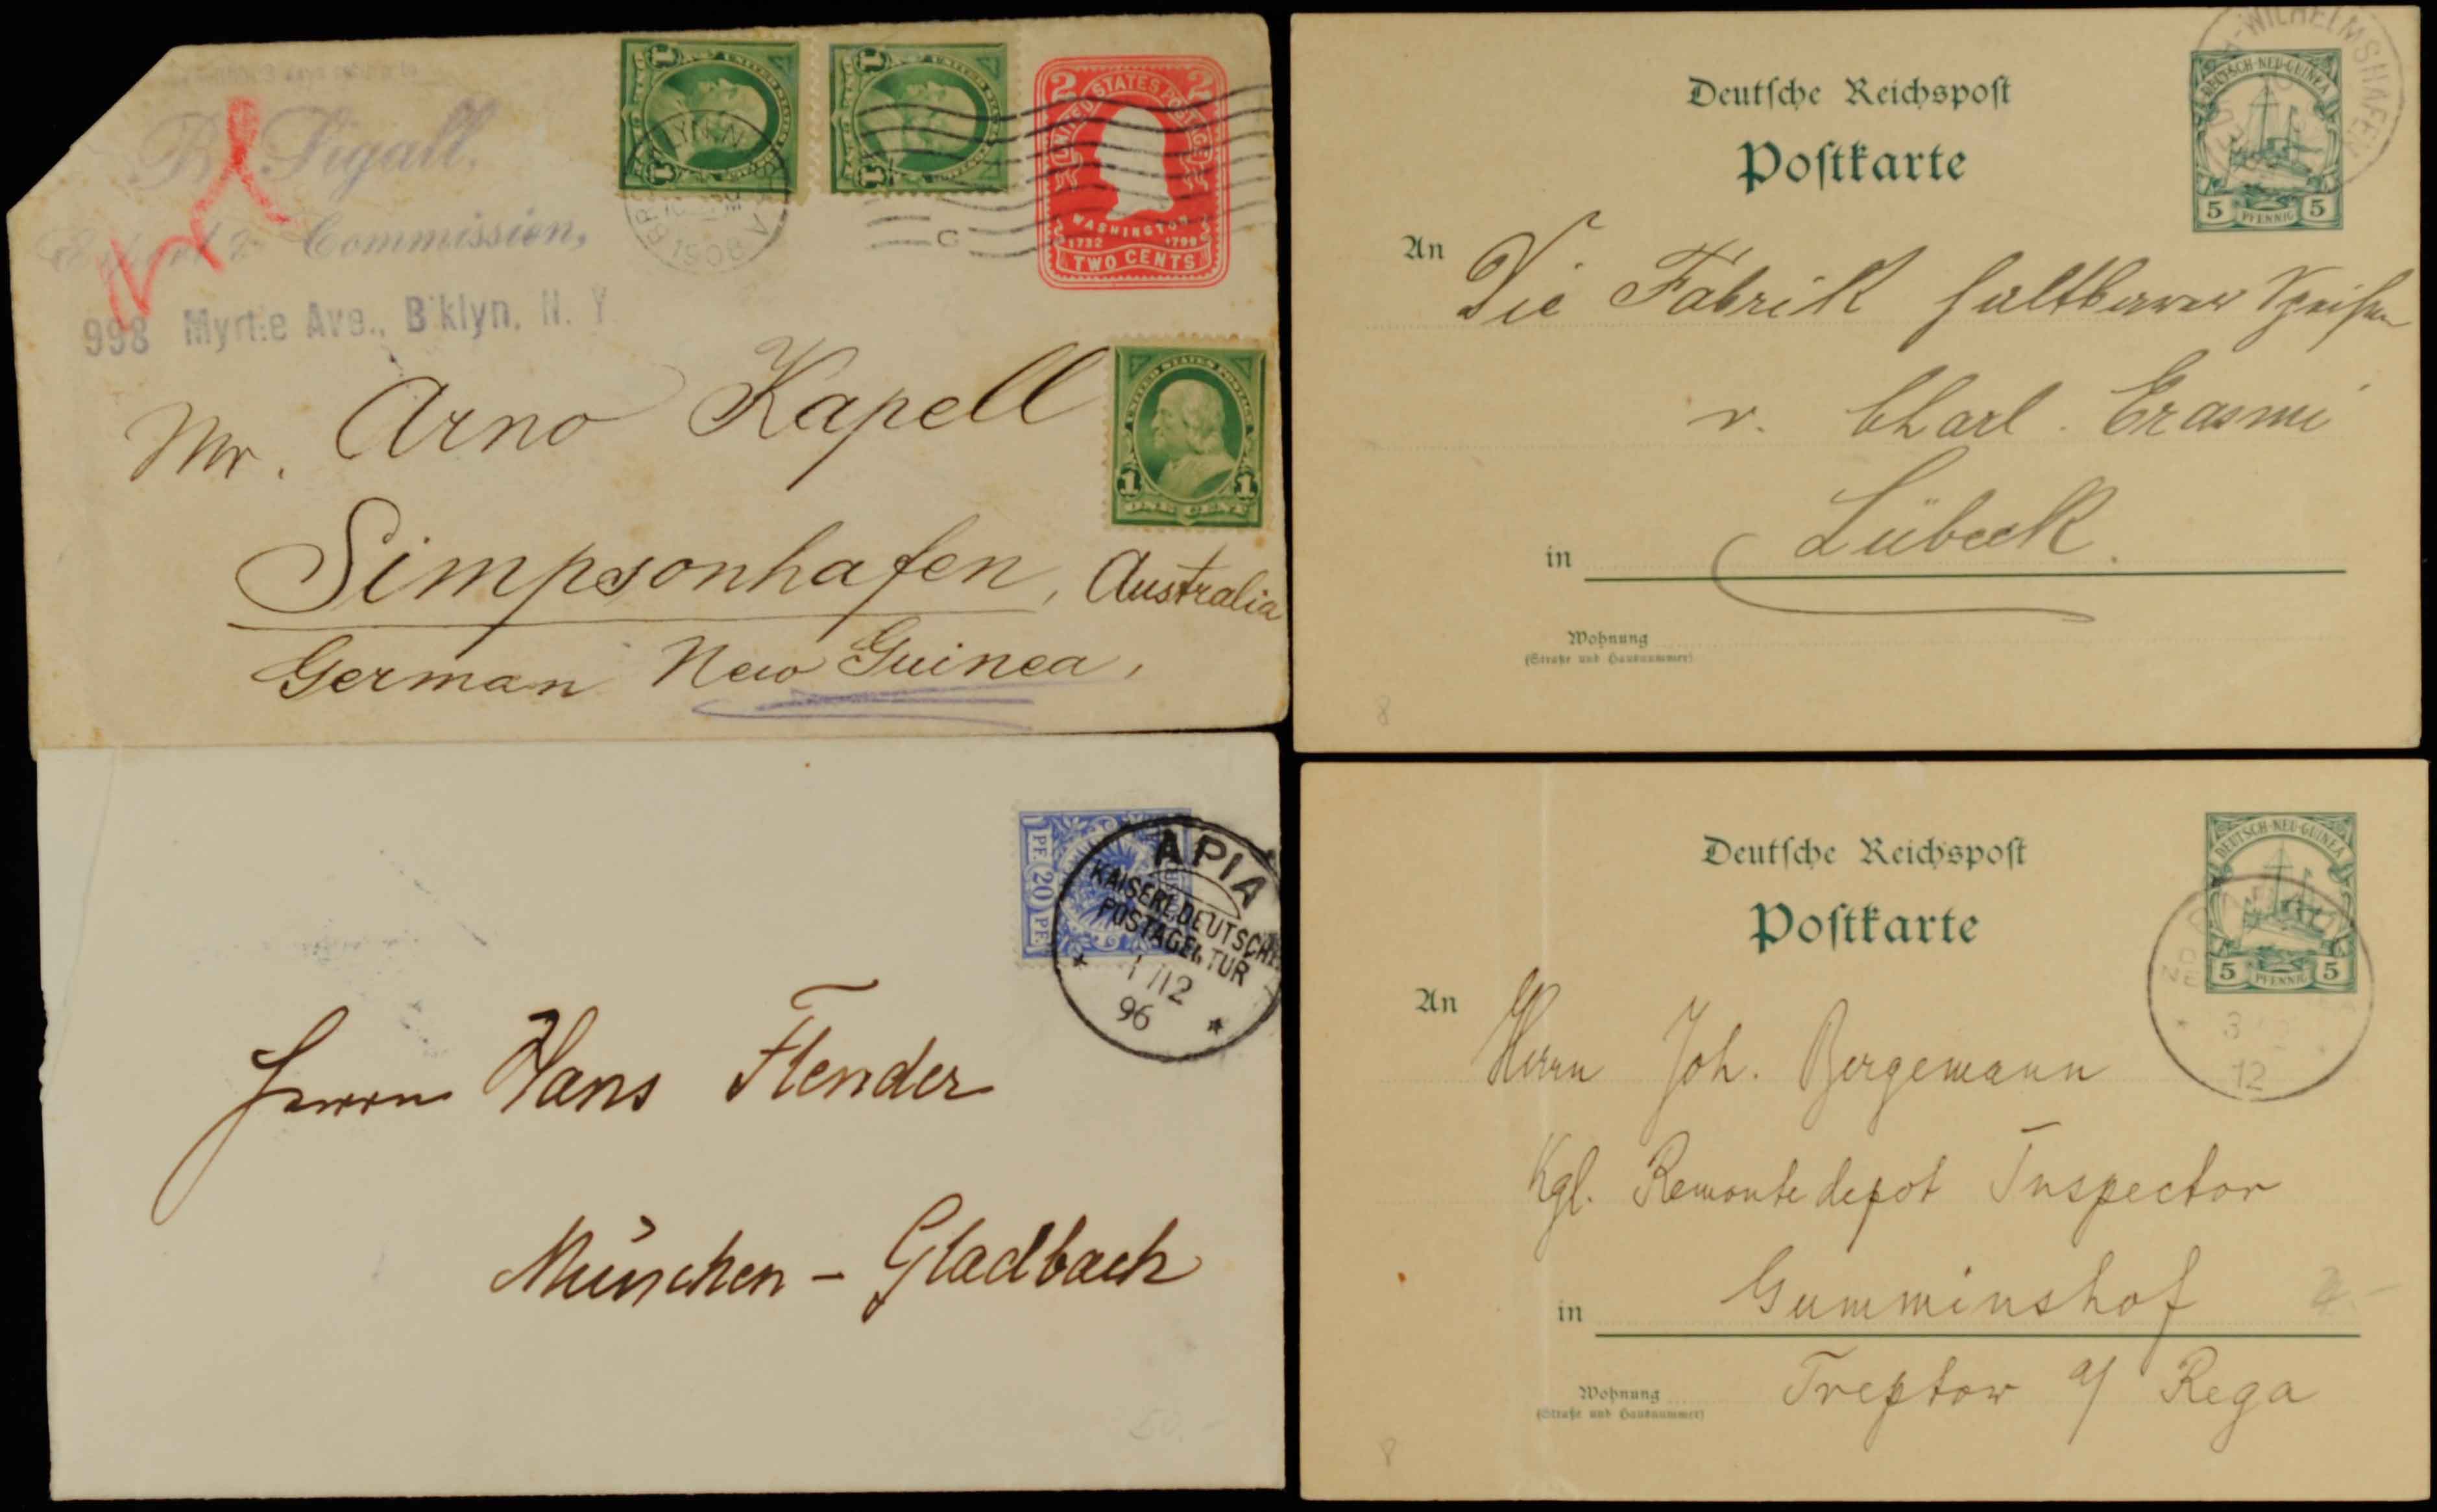 R. Sigall,
Export & Commission,
998 Myrtle Ave., B'klyn, N. Y.
1
1
1
1
BROOKLYN N.Y.
1908
C
2 2
UNITED STATES POSTAGE
WASHINGTON
1732 1799
TWO CENTS
UNITED STATES POSTAGE
1 1
ONE CENT
Mr. Arno Kapell
Simpsonhafen, Australia
German New Guinea,
FRIEDRICH-WILHELMSHAFEN
DEUTSCH-NEU-GUINEA
5 PFENNIG 5
Deutſche Reichspoſt
Poſtkarte
An Die Fabrik haltbarer Speisen
v. Charl. Erasmi
in Lübeck.
Wohnung
(Straße und Hausnummer)
8
20 PF.
APIA
KAISERL. DEUTSCHE
POSTAGENTUR
1/12
96
Herrn Hans Flender
München - Gladbach
50.-
Deutſche Reichspoſt
Poſtkarte
DEUTSCH-NEU-GUINEA
5 PFENNIG 5
12
An Herrn Joh. Bergemann
Kgl. Remontedepot Inspector
in Gumminshof
Wohnung Treptow a/ Rega
(Straße und Hausnummer)
8